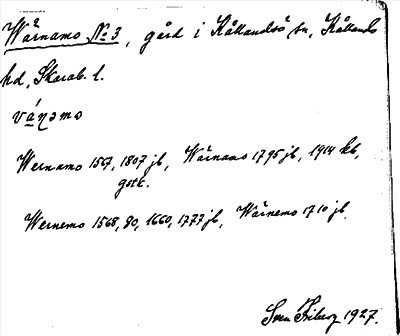 Wärnamo No 3, gård i Kållandsö sn, Kållands
hd, Skarab. l.
vá̱ṇəmo
Wernamo 1567, 1807 jb, Wärnamo 1795 jb, 1914 kb,
gstk.
Wernemo 1568, 80, 1660, 1777 jb, Wärnemo 1710 jb.
Sven Friberg 1927.